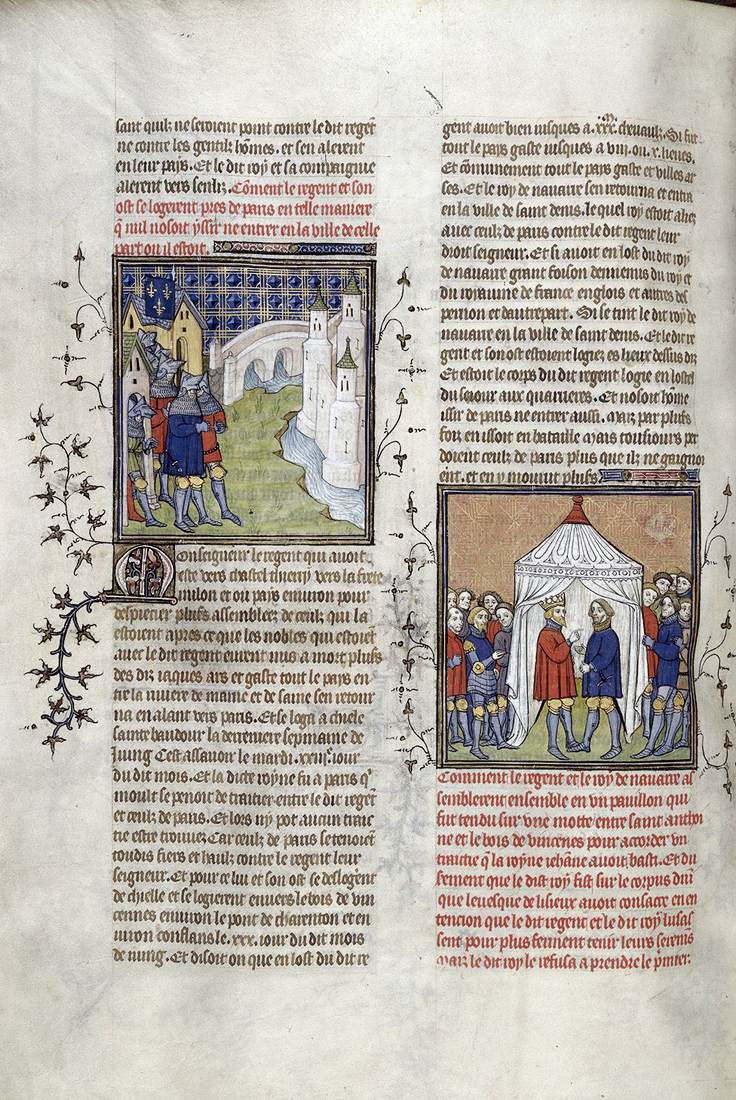 sant quilz ne seroient point contre le dit regent
ne contre les gentilz hõmes. et sen alerent
en leur païs. Et le dit roy et sa compaignie
alerent vers senliz. Cõment le regent et son
ost se logerent pres de paris en telle maniere
q̃ nul nosoit yssir ne entrer en la ville de celle
part ou il estoit.
Monseigneur le regent qui avoit
este vers chastel thierry vers la ferte
milon et ou païs environ pour
despecier plusᷤ assemblees de ceulx qui la
estoient apres ce que les nobles qui estoiẽt
avec le dit regent eurent mis a mort plusᷤ
des diz iacques ars et gaste tout le pays en
tre la riviere de marne et de saine sen retour
na en alant vers paris. Et se loga a chiele
sainte baudour la derreniere sepmaine de
Juing Cest assavoir le mardi .xxvi.e iour
du dit mois. Et la dicte royne fu a paris q̃
moult se penoit de traitier entre le dit regẽt
et ceulz de paris. Et lors ny pot aucun trai
tie estre trouvez Car ceulz de paris se tenoiẽt
toudis fiers et haulz contre le regent leur
seigneur. Et pour ce lui et son ost se deslogẽt
de chielle et se logierent envers le bois de vin
cennes environ le pont de charenton et en
viron conflans le .xxx. iour du dit mois
de iuing. Et disoit on que en lost du dit re
gent avoit bien iusques a .xxx.m chevaulx. Si fut
tout le pays gaste iusques a viii. ou .x. lieues.
Et cõmunement tout le pays gaste et villes ar
ses. Et le roy de navarre sen retourna et entra
en la ville de saint denis. le quel roy estoit aliez
avec ceulz de paris contre le dit regent leur
droit seigneur. Et si avoit en lost du dit roy
de navarre grant foison dennemis du roy et
du royaume de france englois et autres des
perrion et dautrepart. Si se tint le dit roy de
navarre en la ville de saint denis. Et le dit re
gent et son ost estoient logiez es lieux dessus diz
Et estoit le corps du dit regent logie en lostel
du seiour aux quarrieres. Et nosoit hõme
issir de paris ne entrer aussi. Maiz par plusᷤ
foiz en issoit en bataille mais tousiours per
doient ceulz de paris plus que ilz ne gaignoi
ent. et en y mourut plusᷤ
Comment le regent et le roy de navarre as
semblerent ensemble en vn pavillon qui
fut tendu sur vne motte entre saint anthoi
ne et le bois de vincenes pour accorder vn
traictie q̃ la royne iehane avoit basti. Et du
serment que le dict roy fist sur le corpus dñi
que levesque de lisieux avoit consacre en en
tencion que le dit regent et le dit roy lusas
sent pour plus ferment tenir leurs seremẽs
Maiz le dit roy le refusa a prendre le p̃mier.